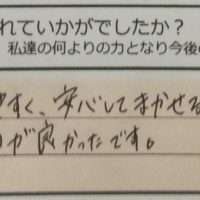 れていかがでしたか?
私達の何よりの力となり今後の
すく、安心してまかせる
が良かったです。